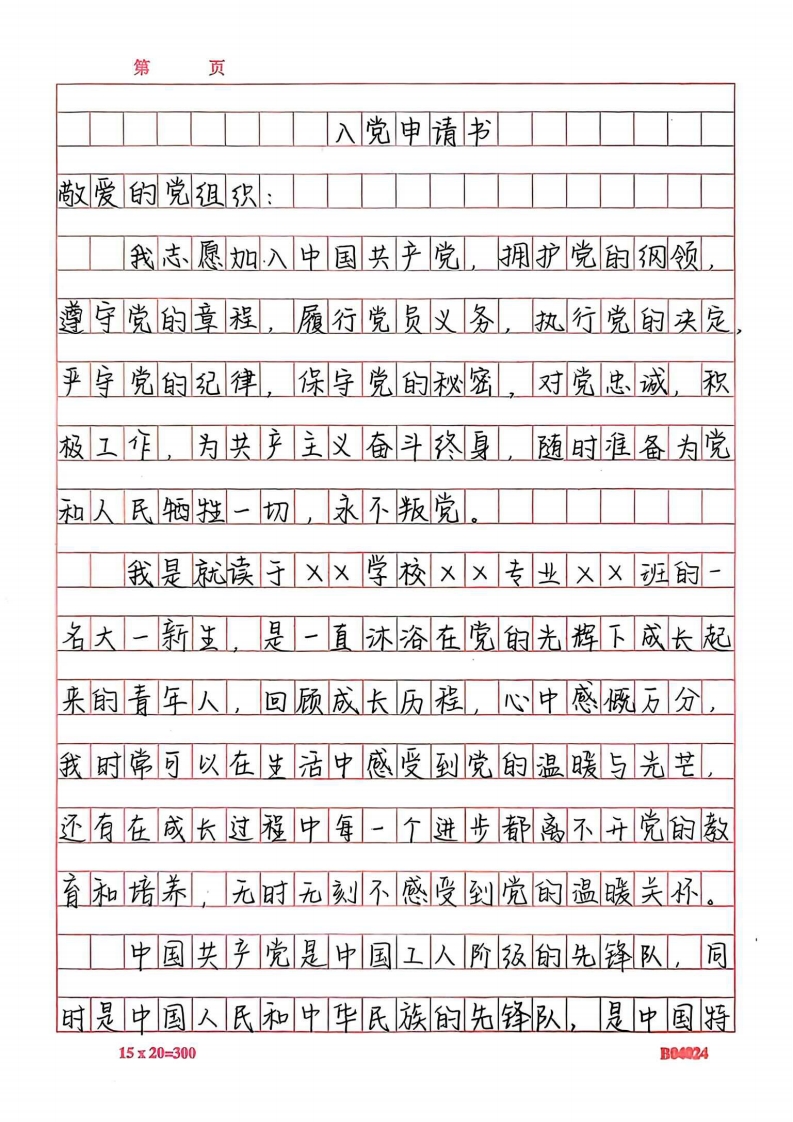 第 页
入党申请书
敬爱的党组织：
我志愿加入中国共产党，拥护党的纲领，
遵守党的章程，履行党员义务，执行党的决定，
严守党的纪律，保守党的秘密，对党忠诚，积
极工作，为共产主义奋斗终身，随时准备为党
和人民牺牲一切，永不叛党。
我是就读于××学校××专业××班的一
名大一新生，是一直沐浴在党的光辉下成长起
来的青年人，回顾成长历程，心中感慨万分，
我时常可以在生活中感受到党的温暖与光芒，
还有在成长过程中每一个进步都离不开党的教
育和培养，无时无刻不感受到党的温暖关怀。
中国共产党是中国工人阶级的先锋队，同
时是中国人民和中华民族的先锋队，是中国特
15 x 20=300 B04024